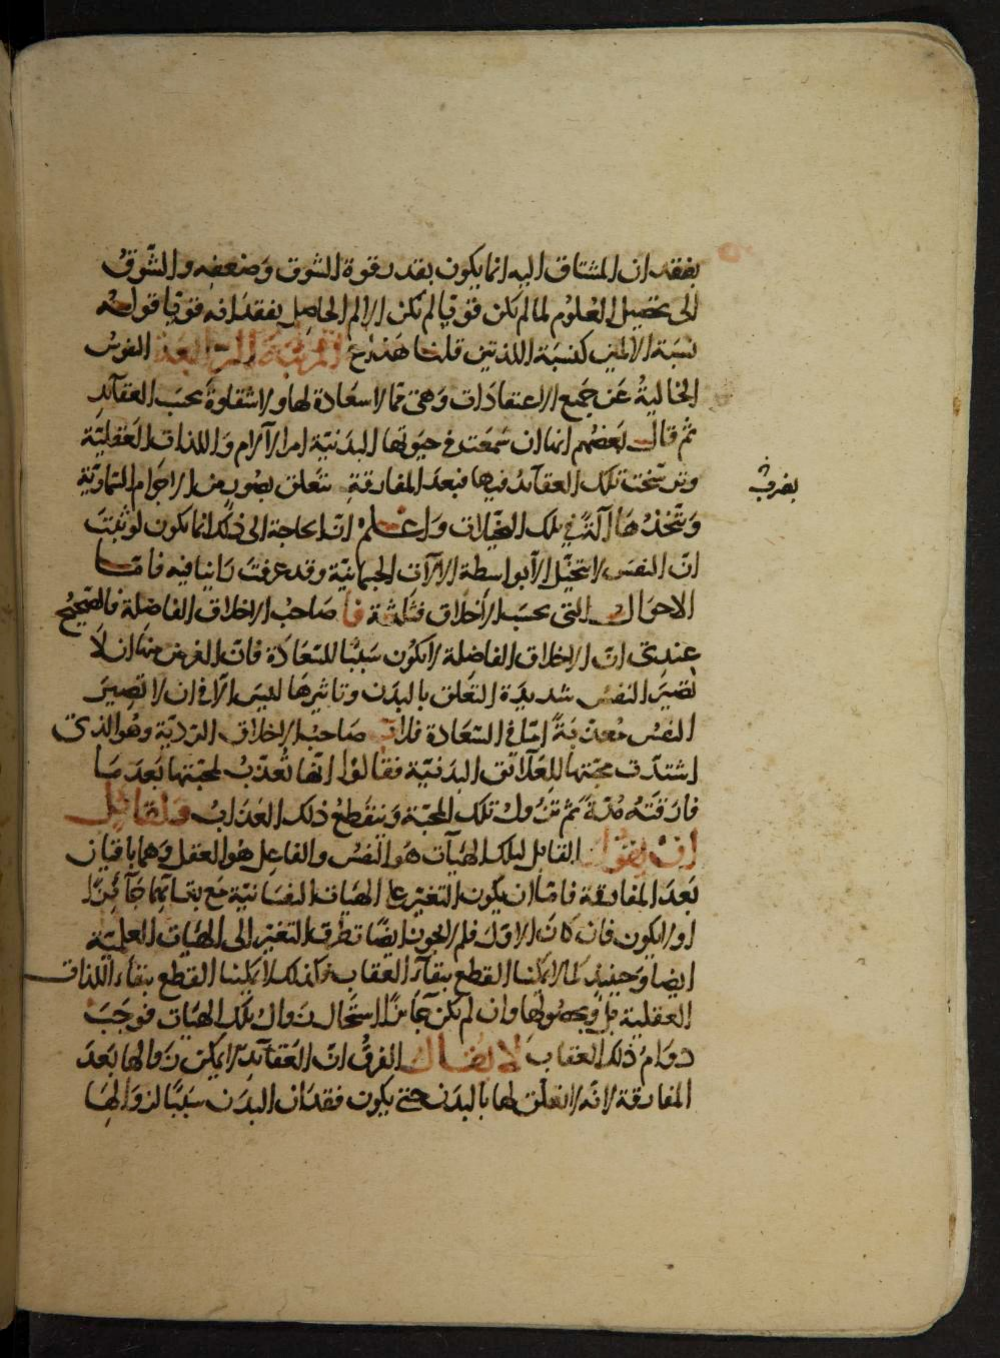 بفقدان المشتاق اليه انما يكون بقدر قوة الشوق وضعفه والشوق
الى تحصيل العلوم لما لم يكن قويا لم يكن الالم الحاصل بفقدانه قويا قوله
نسبة الالمين كنسبة اللذتين قلنا هذا ح المرتبة الرابعة النفوس
الخالية عن جميع الاعتقادات وهي مما لا سعادة لها ولا شقاوة بحسب العقآئد
ثم قال بعضهم انها ان سمعت في حيوتها البدنية امر الآلام واللذات العقلية
وترسخت تلك العقآئد فيها فبعد المفارقة تتعلق بضرب من الاجرام السماوية
وتتخذها آلة في تلك التخيلات واعلم ان الحاجة الى ذلك انما يكون لو ثبت
ان النفس لا تتخيل الا بواسطة الالآت الجسمانية وقد عرفت راينا فيه فامــا
الاحوال التي بحسب الاخلاق فثلثة فا صاحب الاخلاق الفاضلة فالصحيح
عندي ان الاخلاق الفاضلة لا تكون سببا للسعادة فان الغرض منها ان لا
تصير النفس شديدة التعلق بالبدن وتاثيرها ليس الا في ان لا تصير
النفس معذبة اما في السعادة فلا صاحب الاخلاق الردية وهو الذي
اشتدت محبتها للعلآئق البدنية فقالوا انها تعذب لمحبتها بعد ما
فارقته مدة ثم تزول تلك المحبة وينقطع ذلك العذاب ولقائل
ان يقول القابل لتلك الهيآت هو النفس والفاعل هو العقل وهما باقيان
بعد المفارقة فاما ان يكون التغير على الهيات النفسانية مع بقآئهما جآئزا
او لا يكون فان كان الاول فلم لا يجوز ايضا تطرق التغير الى الهيات العلمية
ايضا وحينئذ كما لا يمكننا القطع ببقآء العقاب فكذلك لا يمكننا القطع ببقآء اللذات
العقلية قبل حصولها وان لم يكن جآئزا استحال زوال تلك الهيات فوجب
دوام ذلك العقاب لا يقال الفرق ان العقآئد لا يمكن زوالها بعد
المفارقة لانه لا تعلق لها بالبدن حتى يكون فقدان البدن سببا لزوالها
بضرب